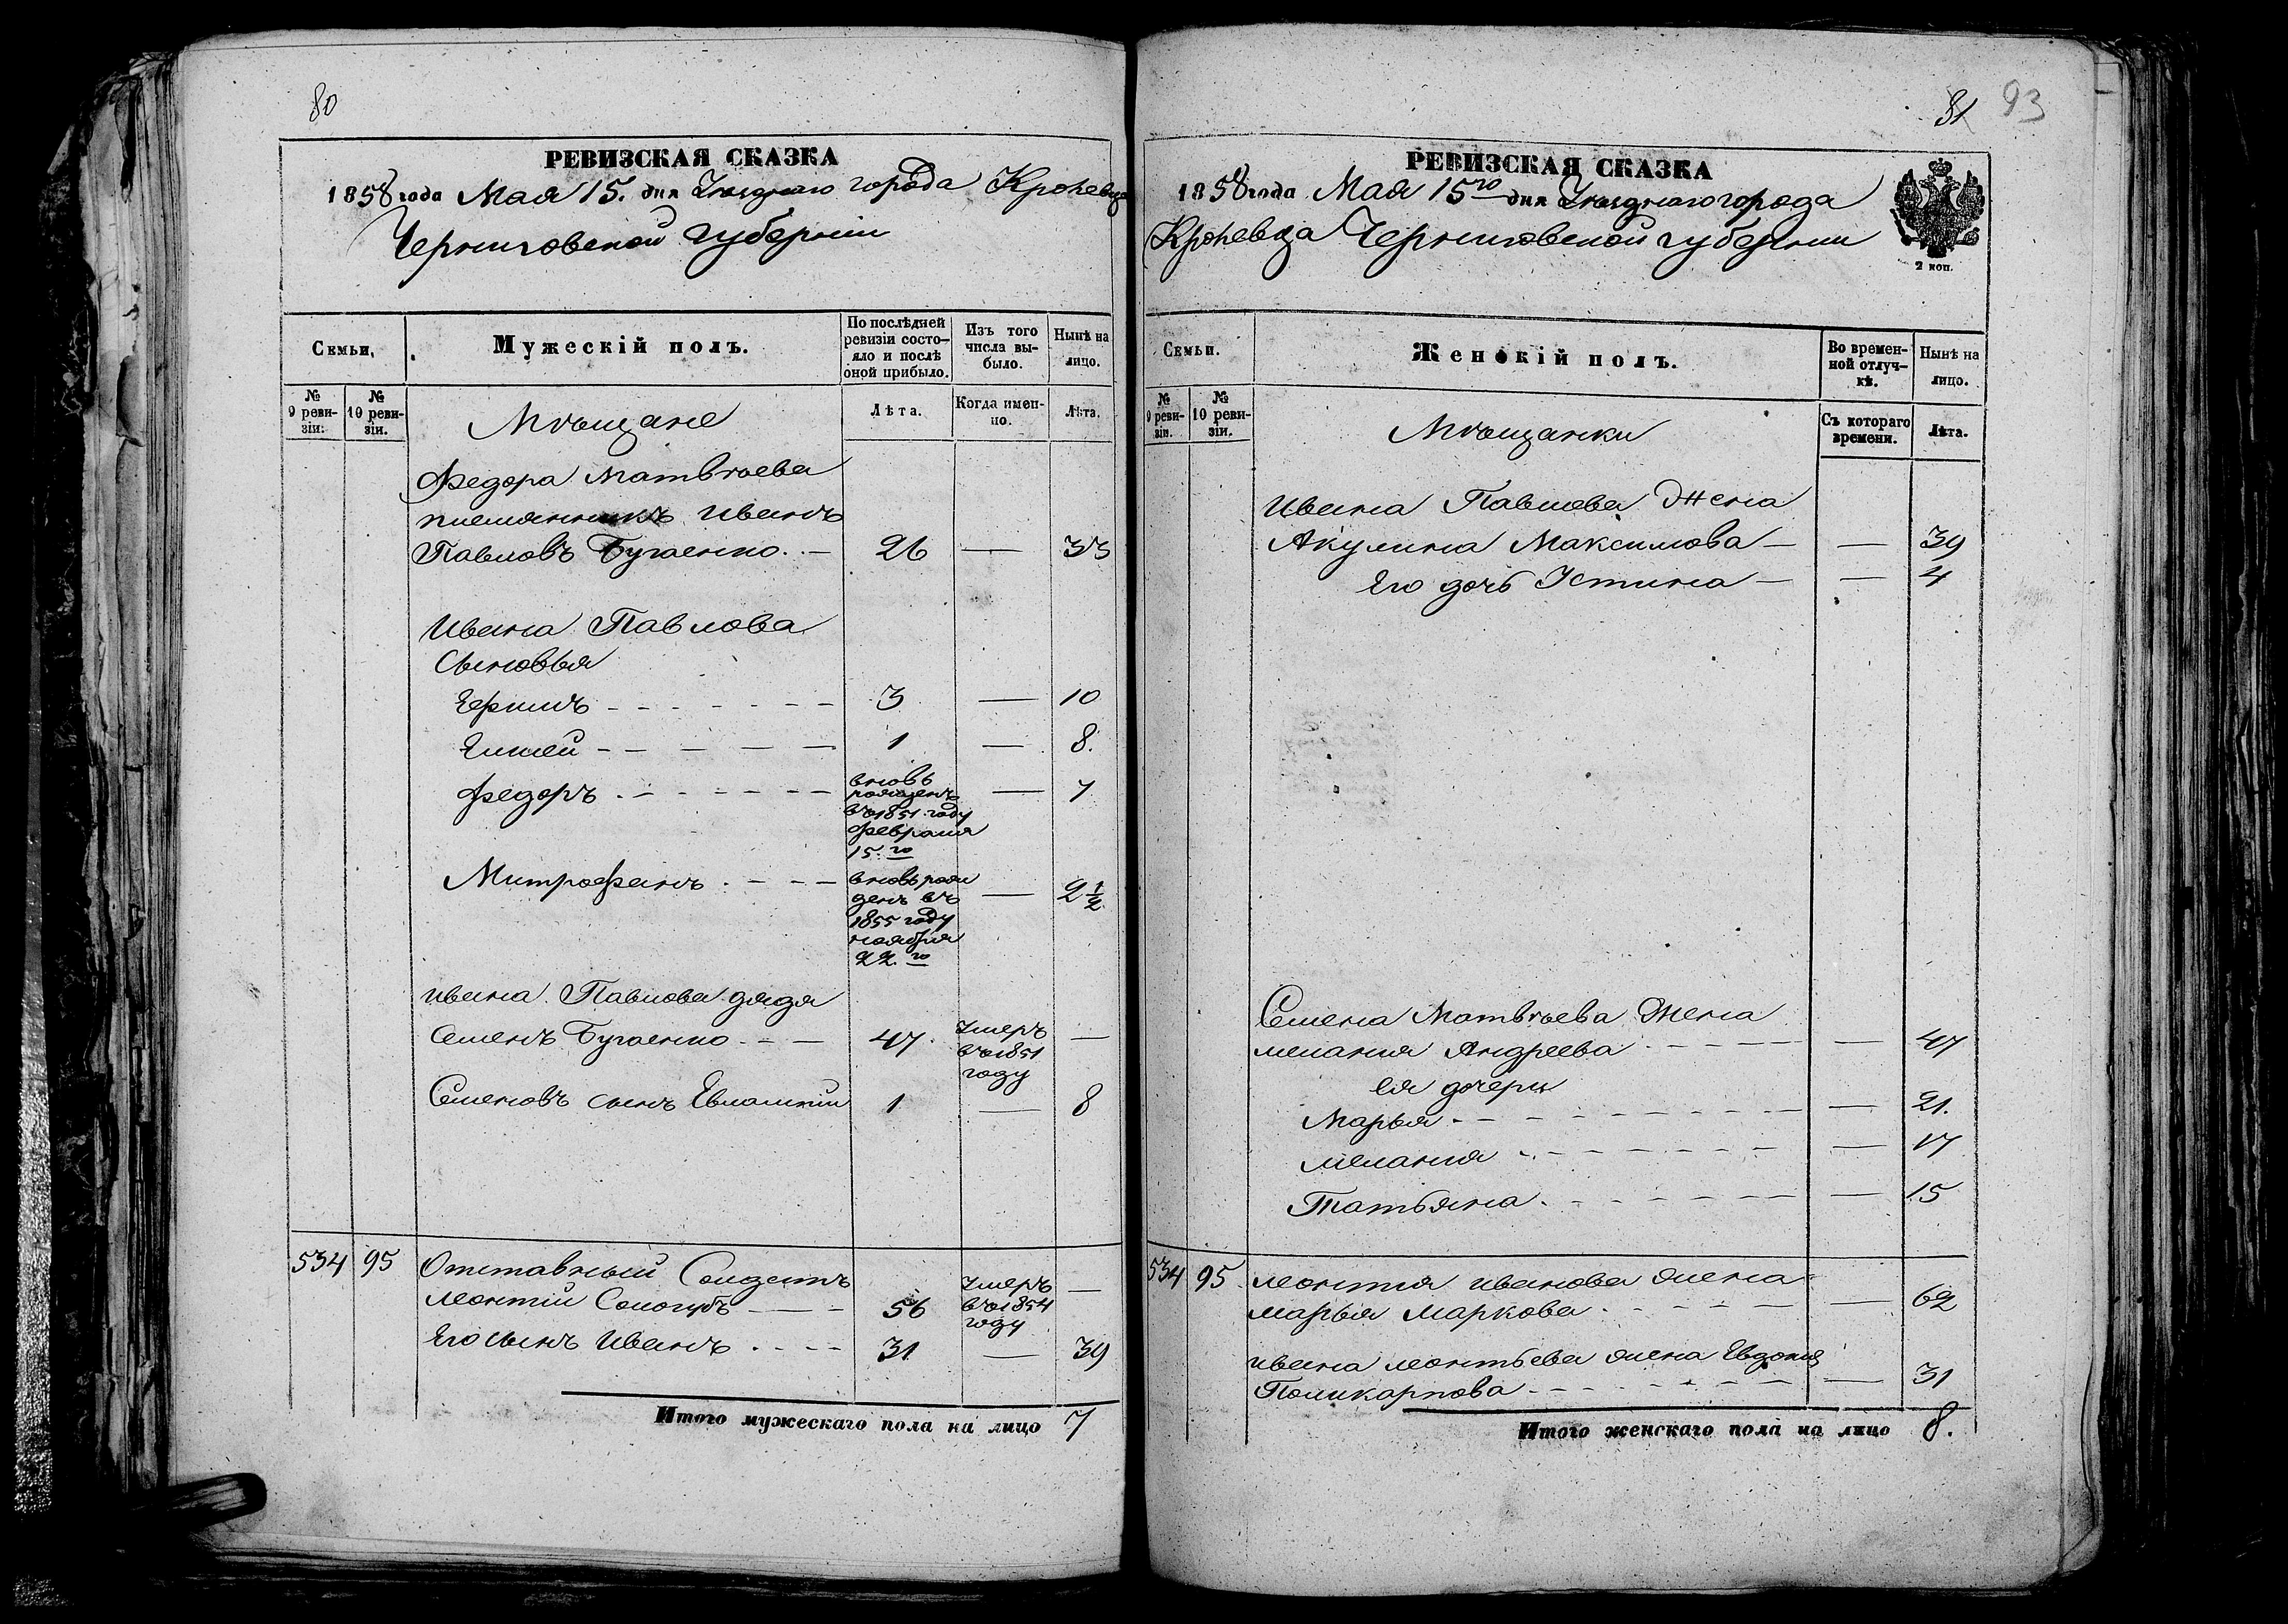 80
РЕВИЗСКАЯ СКАЗКА
1858 года Мая 15. дня Уѣзднаго города Кролевца
Черниговской губерніи
Семьи.
Мужескій полъ.
По послѣдней ревизіи состо-
яло и послѣ
оной прибыло.
Изъ того
числа вы-
было.
Нынѣ на
лицо.
№ 9 реви-
зіи.
№ 10 реви-
зіи.
Мѣщане
Лѣта.
Когда имен-
но.
Лѣта.
Федора Матвѣева
племянникъ Иванъ
Павловъ Бугаенко 26 — 33
Ивана Павлова
Сыновья
3 — 10
Елисей 1 — 8.
Федоръ вновь
рожденъ — 7
въ 1851 году
февраля
15.го
Митрофанъ вновь рож
денъ въ — 2 1/2
1855 году
ноября
22.го
Ивана Павлова дядя
Семенъ Бугаенко 47. Умеръ —
въ 1851
году
Семеновъ сынъ Евлампій 1 — 8
534 95 Отставный Солдатъ
Леонтій Сологубъ 56 Умеръ —
въ 1854
году
Его сынъ Иванъ 31 — 39
Итого мужескаго пола на лицо 7
81 93
РЕВИЗСКАЯ СКАЗКА
1858 года Мая 15го дня Уѣзднаго города
Кролевца Черниговской губерніи
2 коп.
Семьи.
Женскій полъ.
Во времен-
ной отлуч-
кѣ.
Нынѣ на
лицо.
№ 9 реви-
зіи.
№ 10 реви-
зіи.
Мѣщанки
Съ котораго
времени.
Лѣта.
Ивана Павлова Жена
Акулина Максимова — — 39
Его дочь Устина — — 4
Семена Матвѣева Жена
Мелания Андреева — 47
ея дочери
Марья — 21.
Мелания — 17
Татьяна — 15
534 95 Леонтия Иванова жена
Марья Маркова — 62
Ивана Леонтьева жена Евдокия
Поликарпова — 31
Итого женскаго пола на лицо 8.